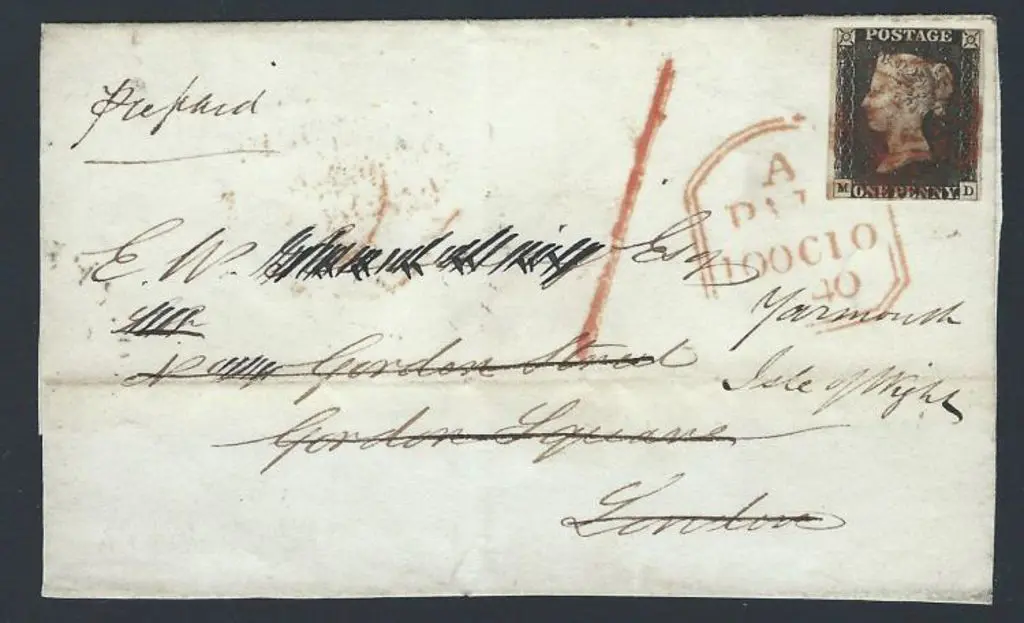 POSTAGE
ONE PENNY
M D
Prepaid
1
A
10OC10
40
E. W. Esq
Yarmouth
Isle of Wight
Gordon Street
Gordon Square
London